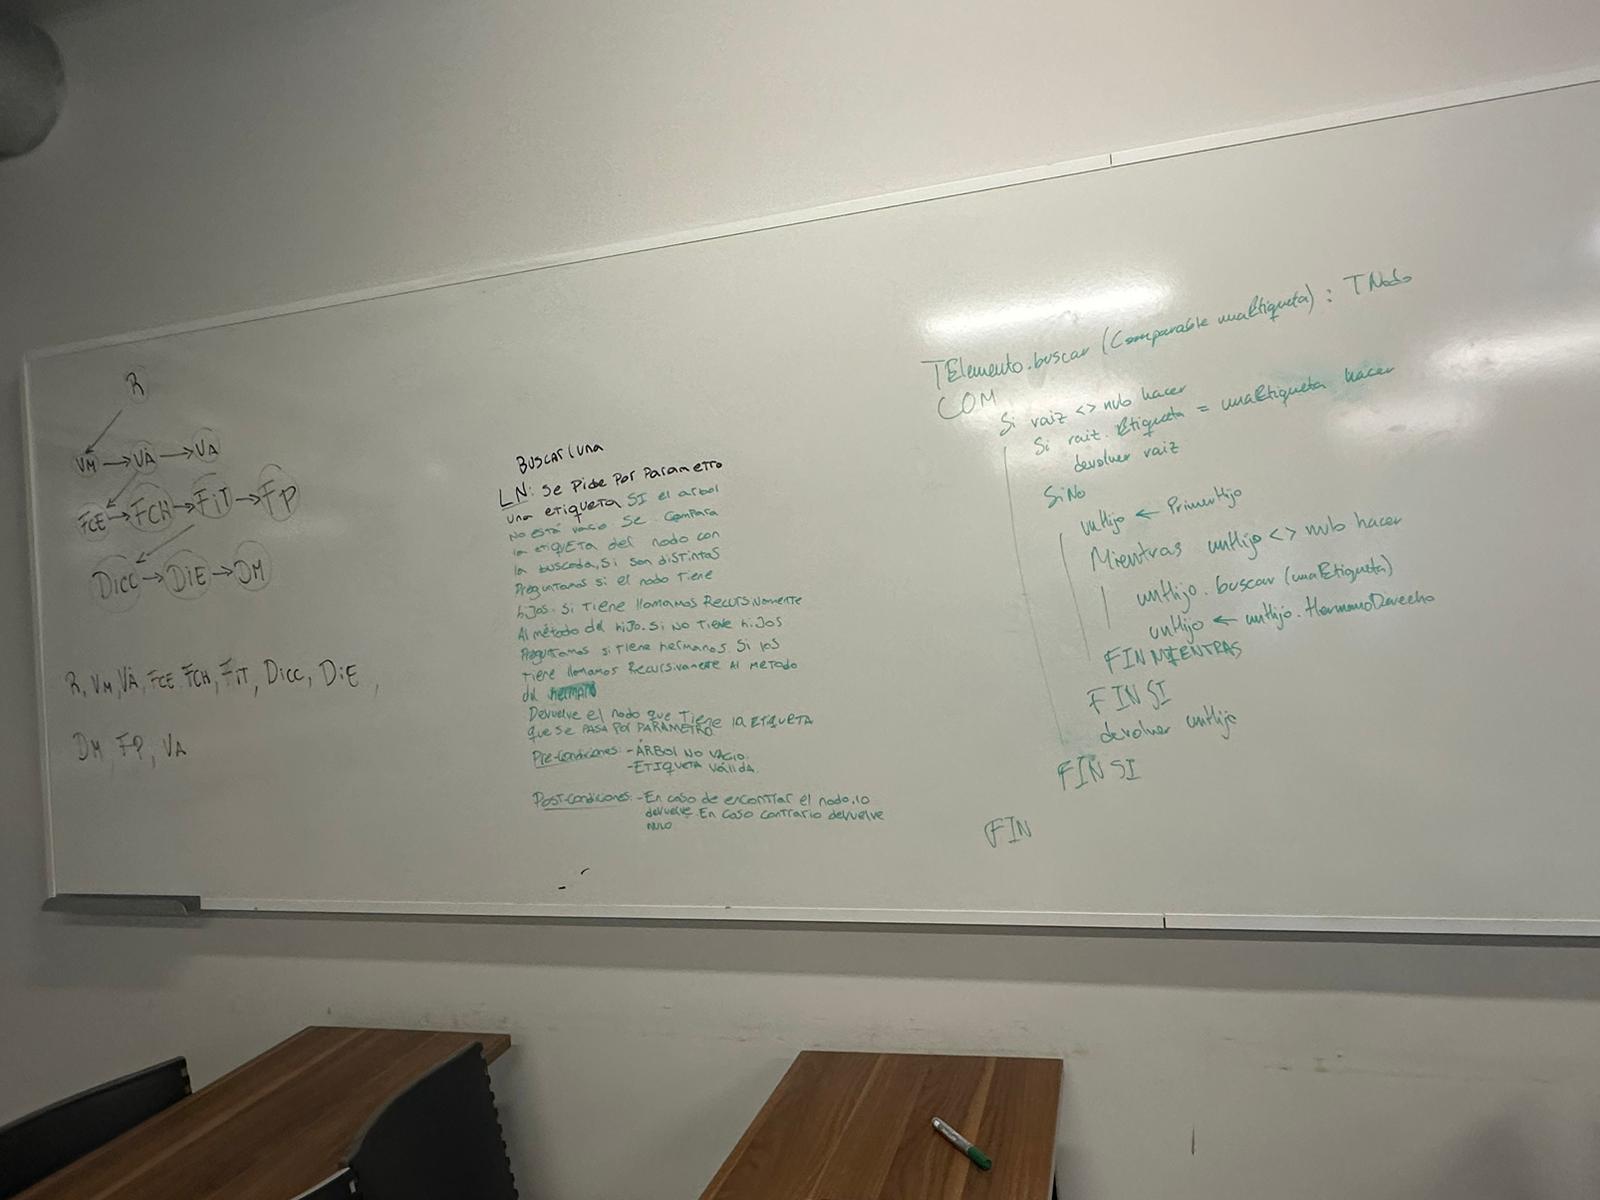 R
VM → VA → VA
FCE → FCH → FiT → FP
Dicc → DiE → DM
R, VM, VA, FCE, FCH, FiT, Dicc, DiE,
DM, FP, VA
Buscar(una
LN: Se Pide Por Parametro
una etiqueta SI el arbol
no está vacio Se compara
la etiqueta del nodo con
la buscada, Si son distintas
Preguntamos si el nodo Tiene
hijos. Si Tiene llamamos Recursivamente
Al método del hijo. Si no Tiene hijos
Preguntamos si Tiene hermanos. Si los
Tiene llamamos Recursivamente Al método
del hermano
Devuelve el nodo que Tiene la ETIQUETA
que se PASA POR PARÁMETRO
Pre-condiciones: - ÁRBOL NO VACIO.
- ETIQUETA VÁLIDA.
Post-condiciones: - En caso de encontrar el nodo, lo
devuelve. En caso contrario devuelve
nulo
TElemento.buscar (Comparable unaEtiqueta) : TNodo
COM
Si raiz <> nulo hacer
Si raiz.Etiqueta = unaEtiqueta hacer
devolver raiz
SiNo
unHijo ← PrimerHijo
Mientras unHijo <> nulo hacer
unHijo.buscar (unaEtiqueta)
unHijo ← unHijo.HermanoDerecho
FIN MIENTRAS
FIN SI
devolver unHijo
FIN SI
FIN